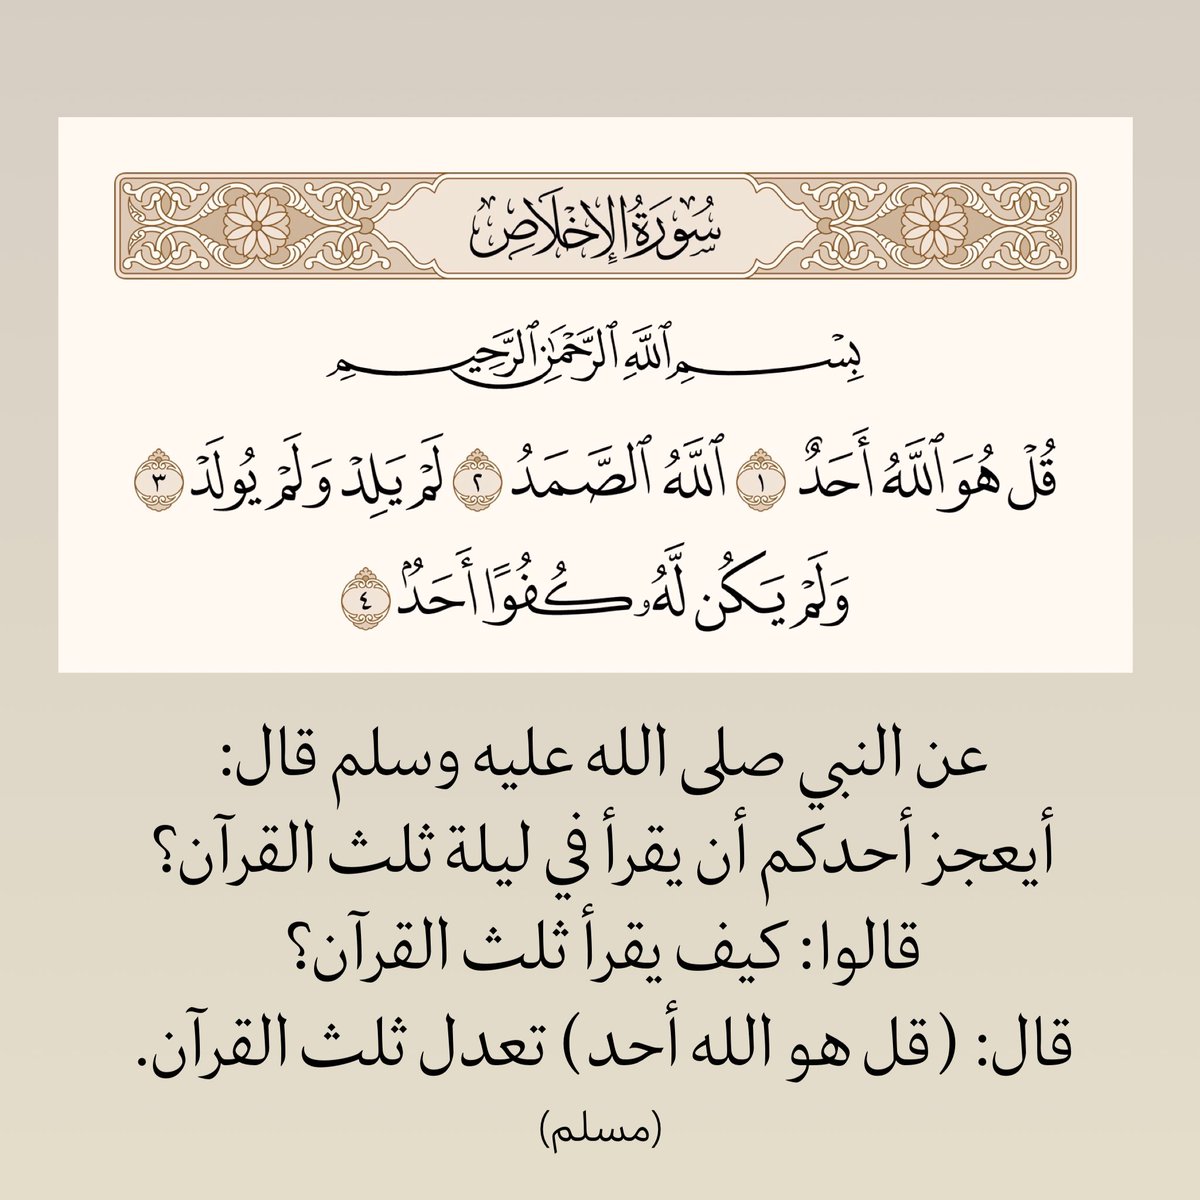 سُورَةُ الإِخْلَاصِ
بِسْمِ ٱللَّهِ ٱلرَّحْمَٰنِ ٱلرَّحِيمِ
قُلْ هُوَ ٱللَّهُ أَحَدٌ ١ ٱللَّهُ ٱلصَّمَدُ ٢ لَمْ يَلِدْ وَلَمْ يُولَدْ ٣
وَلَمْ يَكُن لَّهُۥ كُفُوًا أَحَدٌۢ ٤
عن النبي صلى الله عليه وسلم قال:
أيعجز أحدكم أن يقرأ في ليلة ثلث القرآن؟
قالوا: كيف يقرأ ثلث القرآن؟
قال: (قل هو الله أحد) تعدل ثلث القرآن.
(مسلم)